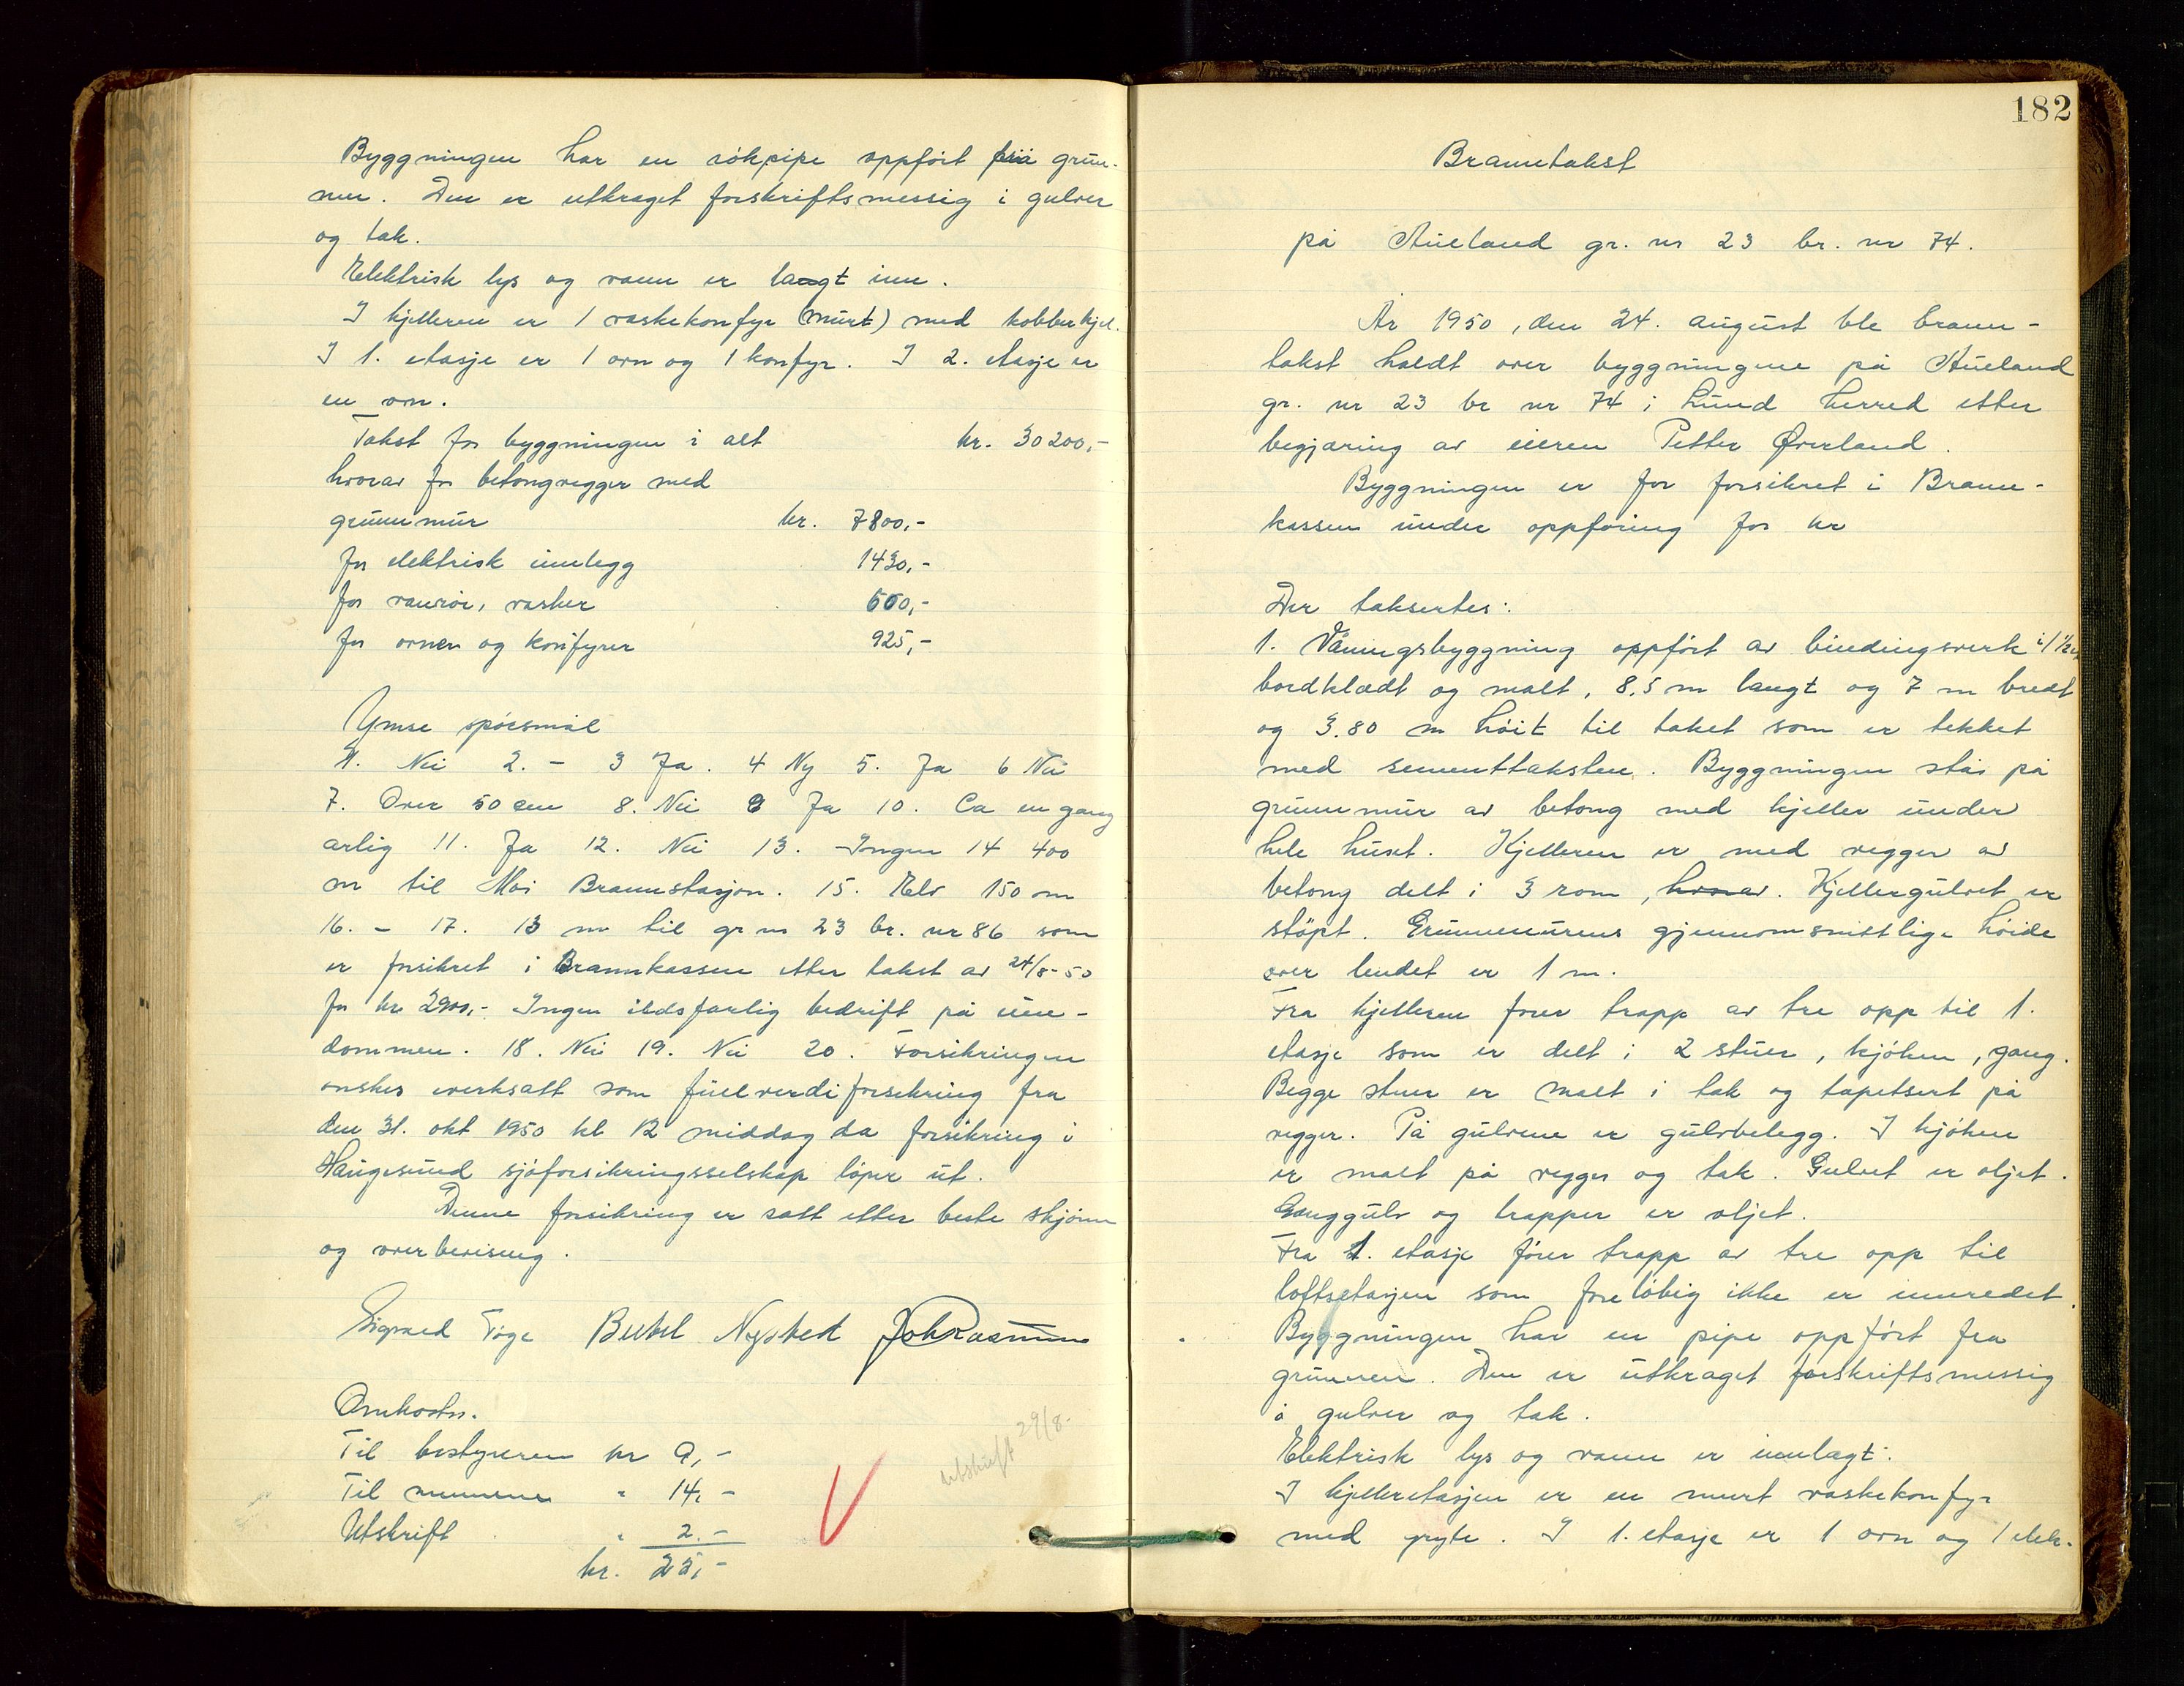 Byggningen har en rökpipe oppfört fra grun-
nen. Den er utkraget forskriftsmessig i gulver
og tak.
Elektrisk lys og vann er lagt inn.
I kjelleren er 1 vaskekomfyr (murt) med kobberkjel.
I 1. etasje er 1 ovn og 1 komfyr. I 2. etasje er
en ovn.
Takst for byggningen i alt kr. 30200,-
hvorav for betongvegger med
grunnmur kr. 7800,-
for elektrisk innlegg 1430,-
for vannrör, vasker 600,-
for ovner og komfyrer 925,-
Ymse spörsmål
1. Nei 2. - 3 Ja. 4 Ny 5. Ja 6 Nei
7. Over 50 cm 8. Nei 9 Ja 10. Ca en gang
arlig 11. Ja 12. Nei 13. Ingen 14 400
m til Moi Brannstasjon. 15. Elv 150 m
16. - 17. 13 m til gr nr 23 br. nr 86 som
er forsikret i Brannkassen etter takst av 24/8-50
for kr Ingen ildsfarlig bedrift på eien-
dommen. 18. Nei 19. Nei 20. Forsikringen
önskes iverksatt som fullverdiforsikring fra
den 31. okt 1950 kl 12 middag da forsikring i
Haugesund sjöforsikringsselskap löper ut.
Denne forsikring er satt etter beste skjönn
og overbevisning.
Sigvald Bertel Nysted Joh Rasmussen
Omkostn.
Til bestyreren kr 9,-
Til mennene " 14,-
Utskrift " 2.-
kr. 25,-
utskrift 29/8-
182
Branntakst
på Aueland gr. nr 23 br. nr 74.
År 1950, den 24. august ble brann-
takst holdt over byggningene på Aueland
gr. nr 23 br nr 74 i Lund herred etter
begjæring av eieren Petter Överland.
Byggningen er för forsikret i Brann-
kassen under oppföring for kr
Der taksertes:
1. Våningsbyggning oppfört av bindingsverk i 1 1/2 et
bordklædt og malt, 8.5 m langt og 7 m bredt
og 3.80 m höit til taket som er tekket
med sementtaksten. Byggningen står på
grunnmur av betong med kjeller under
hele huset. Kjelleren er med vegger av
betong delt i 3 rom, hvorav. Kjellergulvet er
stöpt. Grunnmurens gjennomsnittlige höide
over lendet er 1 m.
Fra kjelleren förer trapp av tre opp til 1.
etasje som er delt i 2 stuer, kjöken, gang.
Begge stuer er malt i tak og tapetsert på
vegger. På gulvene er gulvbelegg. I kjöken
er malt på vegger og tak. Gulvet er oljet.
Ganggulv og trapper er oljet.
Fra 1. etasje förer trapp av tre opp til
loftsetasjen som forelöbig ikke er innredet.
Byggningen har en pipe oppfört fra
grunnen. Den er utkraget forskriftsmessig
i gulver og tak.
Elektrisk lys og vann er innlagt.
I kjelleretasjen er en murt vaskekomfyr
med gryte. I 1. etasje er 1 ovn og 1 elek.